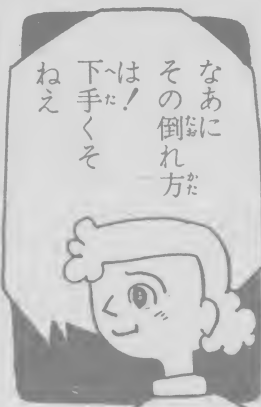 なあに
その倒れ方
は！
下手くそ
ねえ